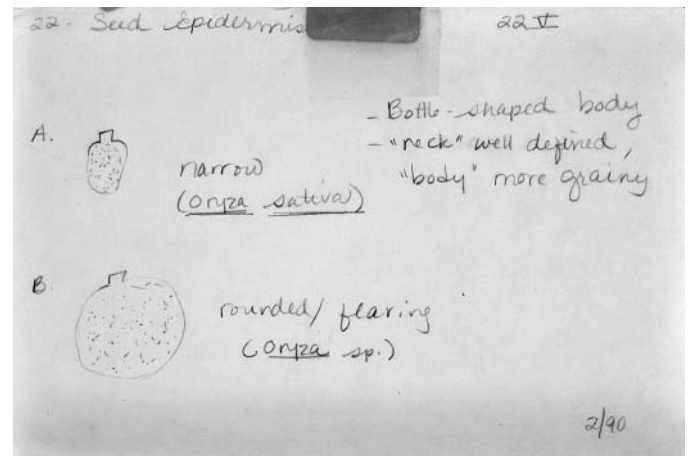 22. Seed Epidermis 22 V
- Bottle-shaped body
- "neck" well defined,
"body" more grainy
A.
narrow
(Oryza sativa)
B.
rounded/flaring
(Oryza sp.)
2/90